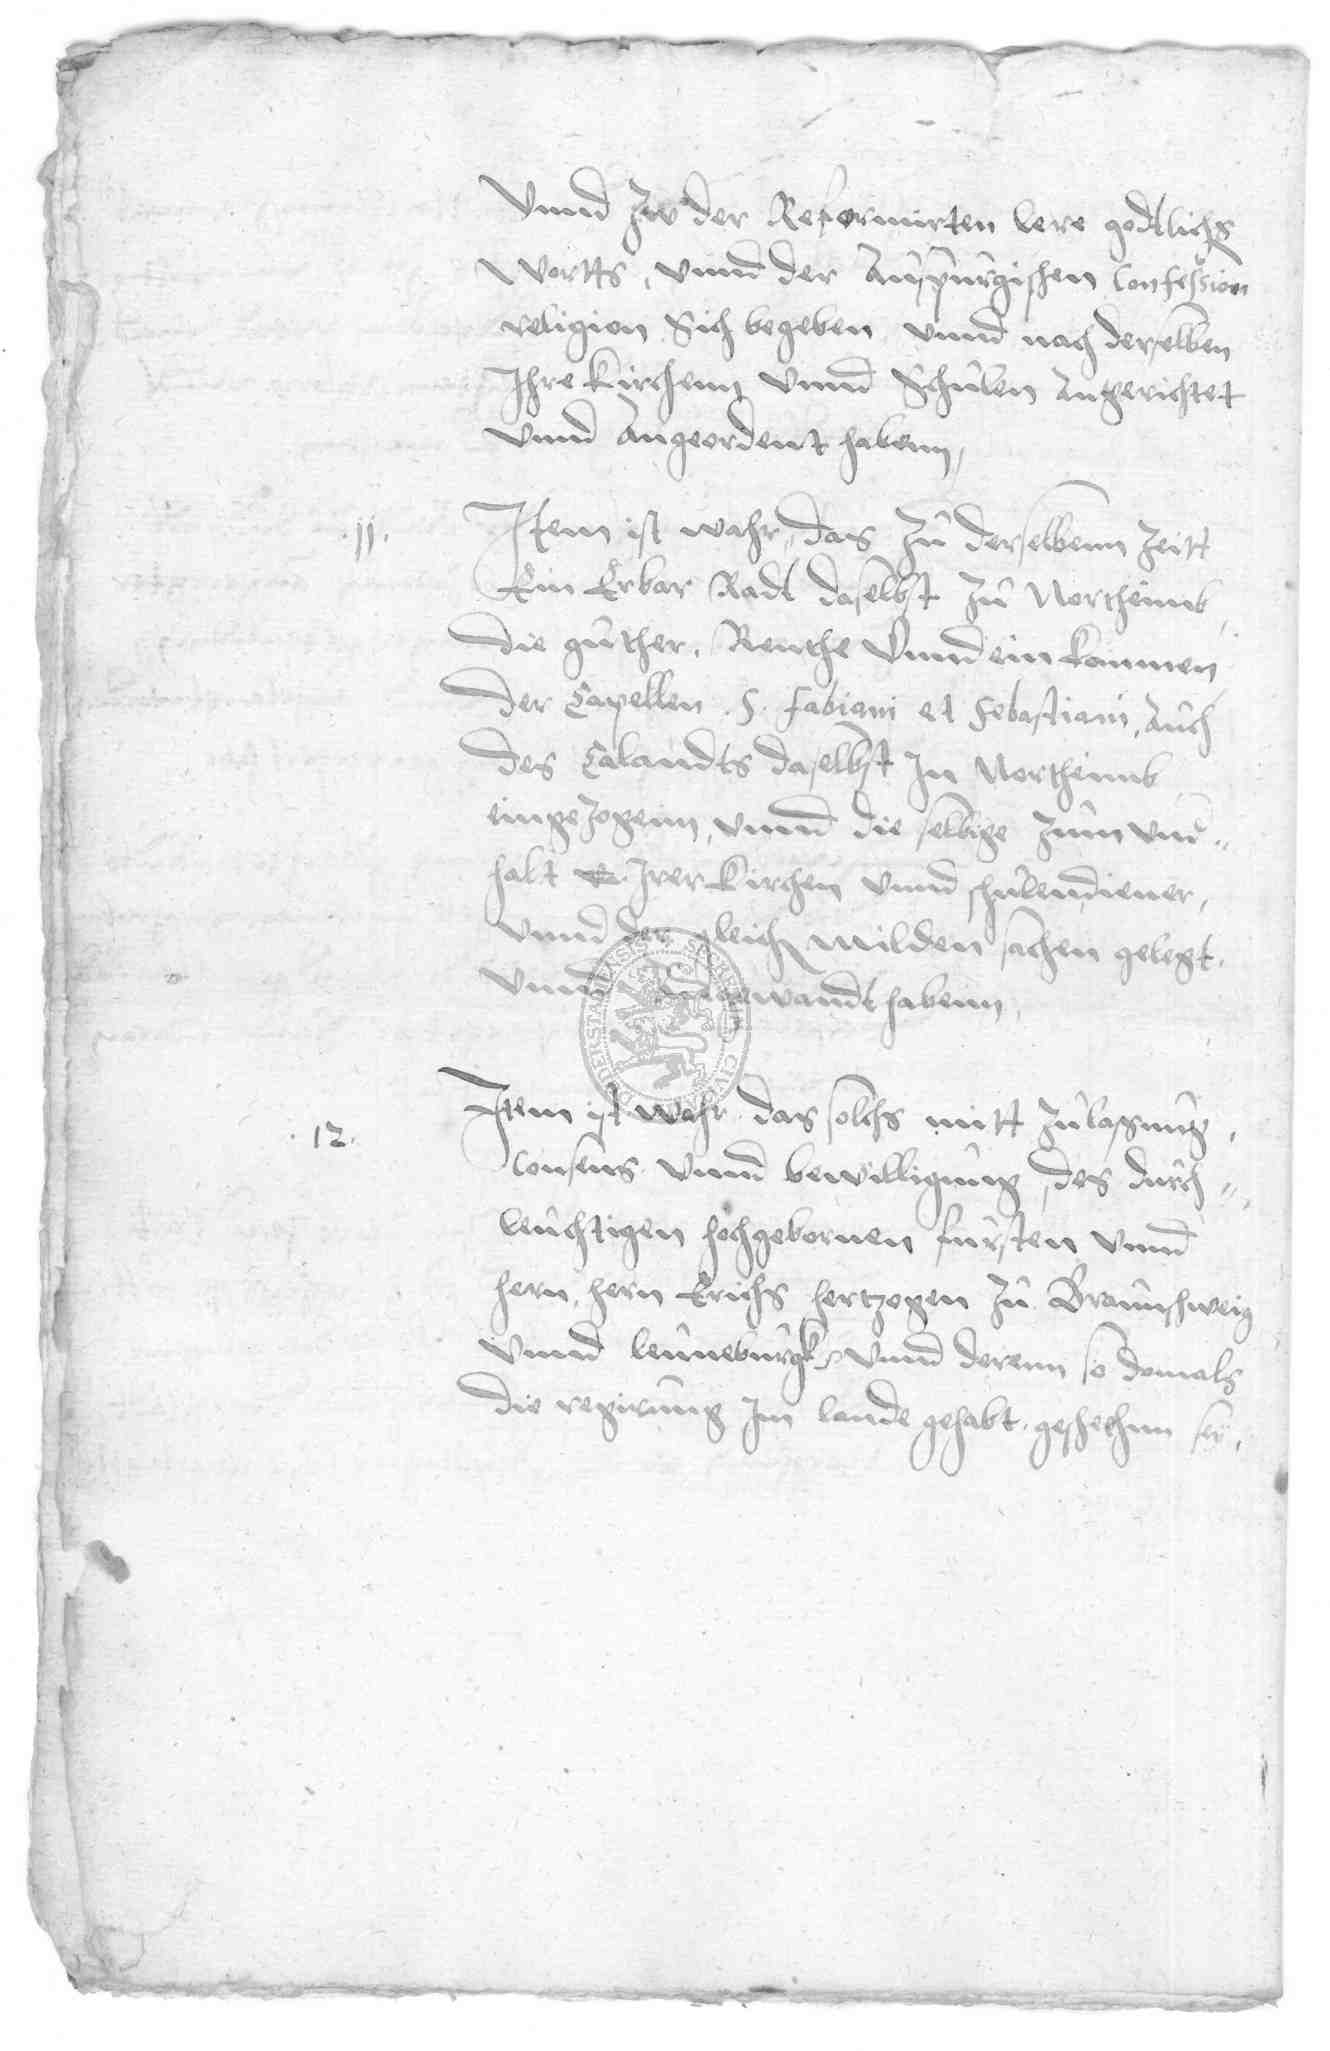 Vnnd Zw der Reformirten lere godtlichs
Wortts, vnnd der Auspurgischen Confession
religion Sich begeben vnnd nach derselben
Ihre Kirchenn vnnd Schulen Angerichtet
vnnd Angeordent habenn,
11. Item ist wahr, das Zu derselbenn Zeitt
Ein Erbar Radt daselbst Zu Northeimb,
die guther, Renthe Vnnd ein kommen
der Capellen S. Fabiani et Sebastiani, Auch
des Calandts daselbst In Northeimb
eingezogenn, vnnd die selbige Zum vnd„
halt Irer Kirchen vnnd schulendiener,
vnnd der gleich milden sachen gelegt,
vnnd habenn,
12. Item ist wahr das solchs mitt Zulassung,
Consens vnnd bewilligung, des durch„
leuchtigen hochgebornen fursten vnnd
hern, hern Erichs hertzogen Zu Braunschweig
vnnd leuneburgk, vnnd derenn so domals
die regirung Im lande gehabt, geschehnn sei,
DUDERSTADENSIS CIVI